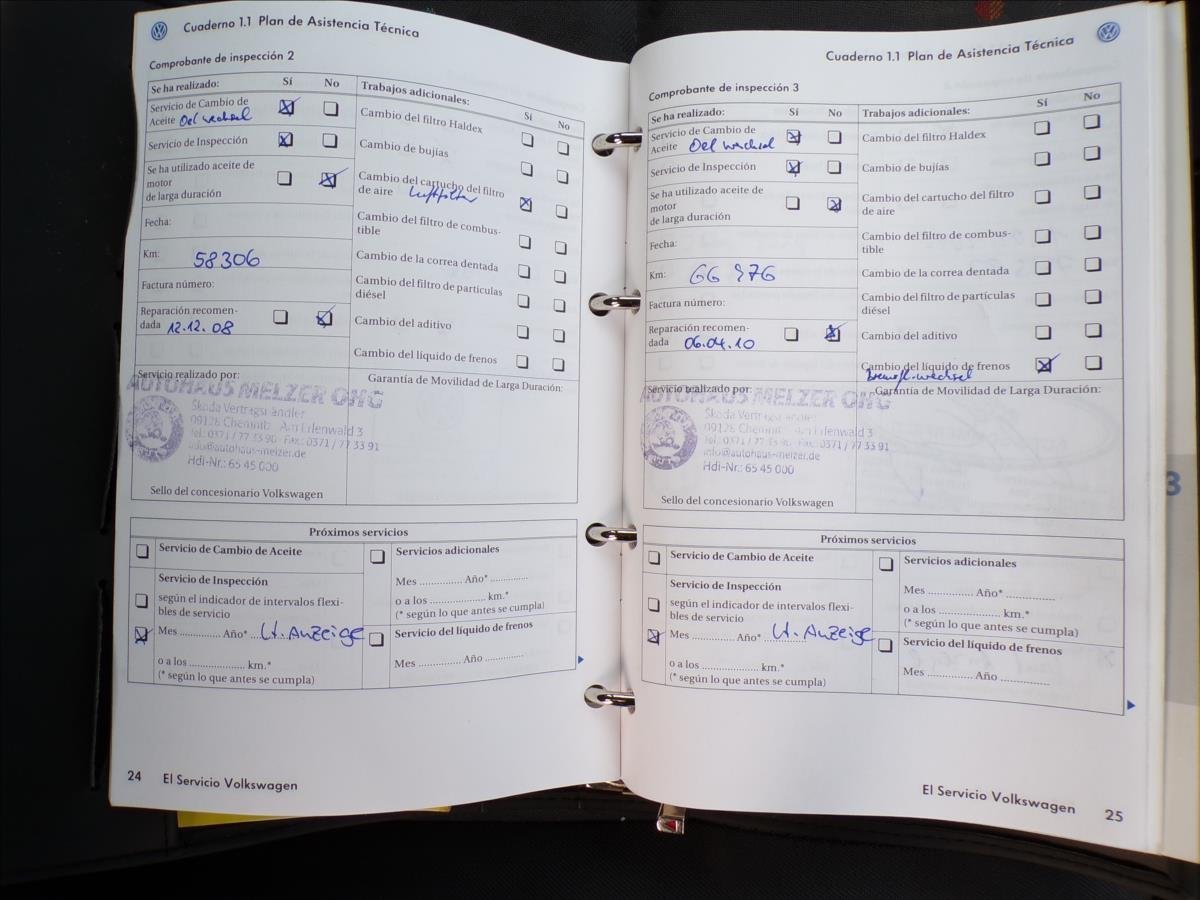 Cuaderno 1.1 Plan de Asistencia Técnica
Comprobante de inspección 2
Se ha realizado: Sí No
Servicio de Cambio de
Aceite Oel wechsel
Servicio de Inspección
Se ha utilizado aceite de
motor
de larga duración
Fecha:
Km: 58306
Factura número:
Reparación recomen-
dada 12.12.08
Servicio realizado por:
AUTOHAUS MELZER OHG
Skoda Vertragshändler
09128 Chemnitz · Am Erlenwald 3
Tel.: 0371 / 77 33 90 · Fax: 0371 / 77 33 91
info@autohaus-melzer.de
Hdl-Nr.: 65 45 000
Sello del concesionario Volkswagen
Trabajos adicionales:
Sí No
Cambio del filtro Haldex
Cambio de bujías
Cambio del cartucho del filtro
de aire Luftfilter
Cambio del filtro de combus-
tible
Cambio de la correa dentada
Cambio del filtro de partículas
diésel
Cambio del aditivo
Cambio del líquido de frenos
Garantía de Movilidad de Larga Duración:
Próximos servicios
Servicio de Cambio de Aceite
Servicio de Inspección
según el indicador de intervalos flexi-
bles de servicio
Mes .............. Año* lt. Anzeige
o a los ..................... km.*
(* según lo que antes se cumpla)
Servicios adicionales
Mes .............. Año* ............
o a los ..................... km.*
(* según lo que antes se cumpla)
Servicio del líquido de frenos
Mes .............. Año ............
24 El Servicio Volkswagen
Cuaderno 1.1 Plan de Asistencia Técnica
Comprobante de inspección 3
Se ha realizado: Sí No
Servicio de Cambio de
Aceite Oel wechsel
Servicio de Inspección
Se ha utilizado aceite de
motor
de larga duración
Fecha:
Km: 66 976
Factura número:
Reparación recomen-
dada 06.04.10
Servicio realizado por:
AUTOHAUS MELZER OHG
Skoda Vertragshändler
09128 Chemnitz · Am Erlenwald 3
Tel.: 0371 / 77 33 90 · Fax: 0371 / 77 33 91
info@autohaus-melzer.de
Hdl-Nr.: 65 45 000
Sello del concesionario Volkswagen
Trabajos adicionales:
Sí No
Cambio del filtro Haldex
Cambio de bujías
Cambio del cartucho del filtro
de aire
Cambio del filtro de combus-
tible
Cambio de la correa dentada
Cambio del filtro de partículas
diésel
Cambio del aditivo
Cambio del líquido de frenos
Bremsfl. wechsel
Garantía de Movilidad de Larga Duración:
Próximos servicios
Servicio de Cambio de Aceite
Servicio de Inspección
según el indicador de intervalos flexi-
bles de servicio
Mes .............. Año* lt. Anzeige
o a los ..................... km.*
(* según lo que antes se cumpla)
Servicios adicionales
Mes .............. Año* ............
o a los ..................... km.*
(* según lo que antes se cumpla)
Servicio del líquido de frenos
Mes .............. Año ............
El Servicio Volkswagen 25
3